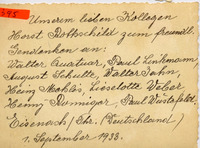 395
Unserem lieben Kollegen
Horst Rothschild zum freundl.
Gedenken an:
Walter Quatuar, Paul Linkmann,
August Schulte, Walter Jahn,
Heinz Lieselotte Weber
Henny Paul
Eisenach / Th. (Deutschland)
1. September 1938.